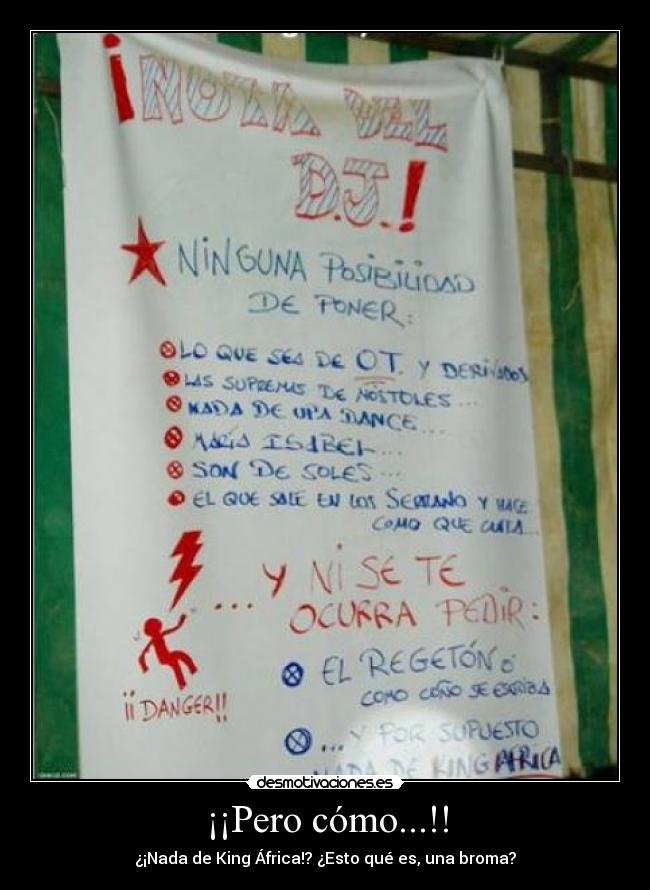 ¡NOTA DEL
D.J.!
NINGUNA POSIBILIDAD
DE PONER:
LO QUE SEA DE O.T. Y DERIVADOS
LAS SUPREMAS DE MÓSTOLES...
NADA DE UPA DANCE...
MARÍA ISABEL...
SON DE SOLES...
EL QUE SALE EN LOS SERRANO Y HACE
COMO QUE CANTA...
... Y NI SE TE
OCURRA PEDIR:
¡¡DANGER!!
EL REGETÓN Ó
COMO COÑO SE ESCRIBA
... Y POR SUPUESTO
NADA DE KING AFRICA
desmotivaciones.es
¡¡Pero cómo...!!
¿¡Nada de King África!? ¿Esto qué es, una broma?